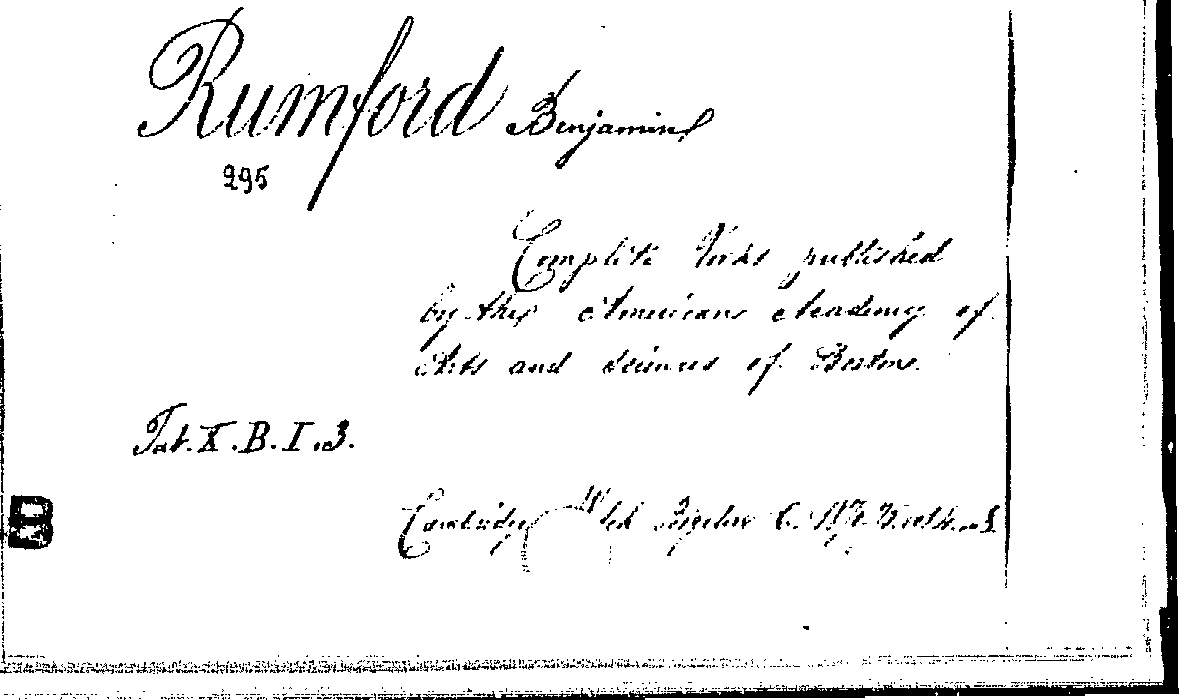 Rumford Benjamin
295
Complete Works published
by the American Academy of
Arts and Sciences of Boston.
Tat. X. B. I. 3.
Cambridge Welch Bigelow C.